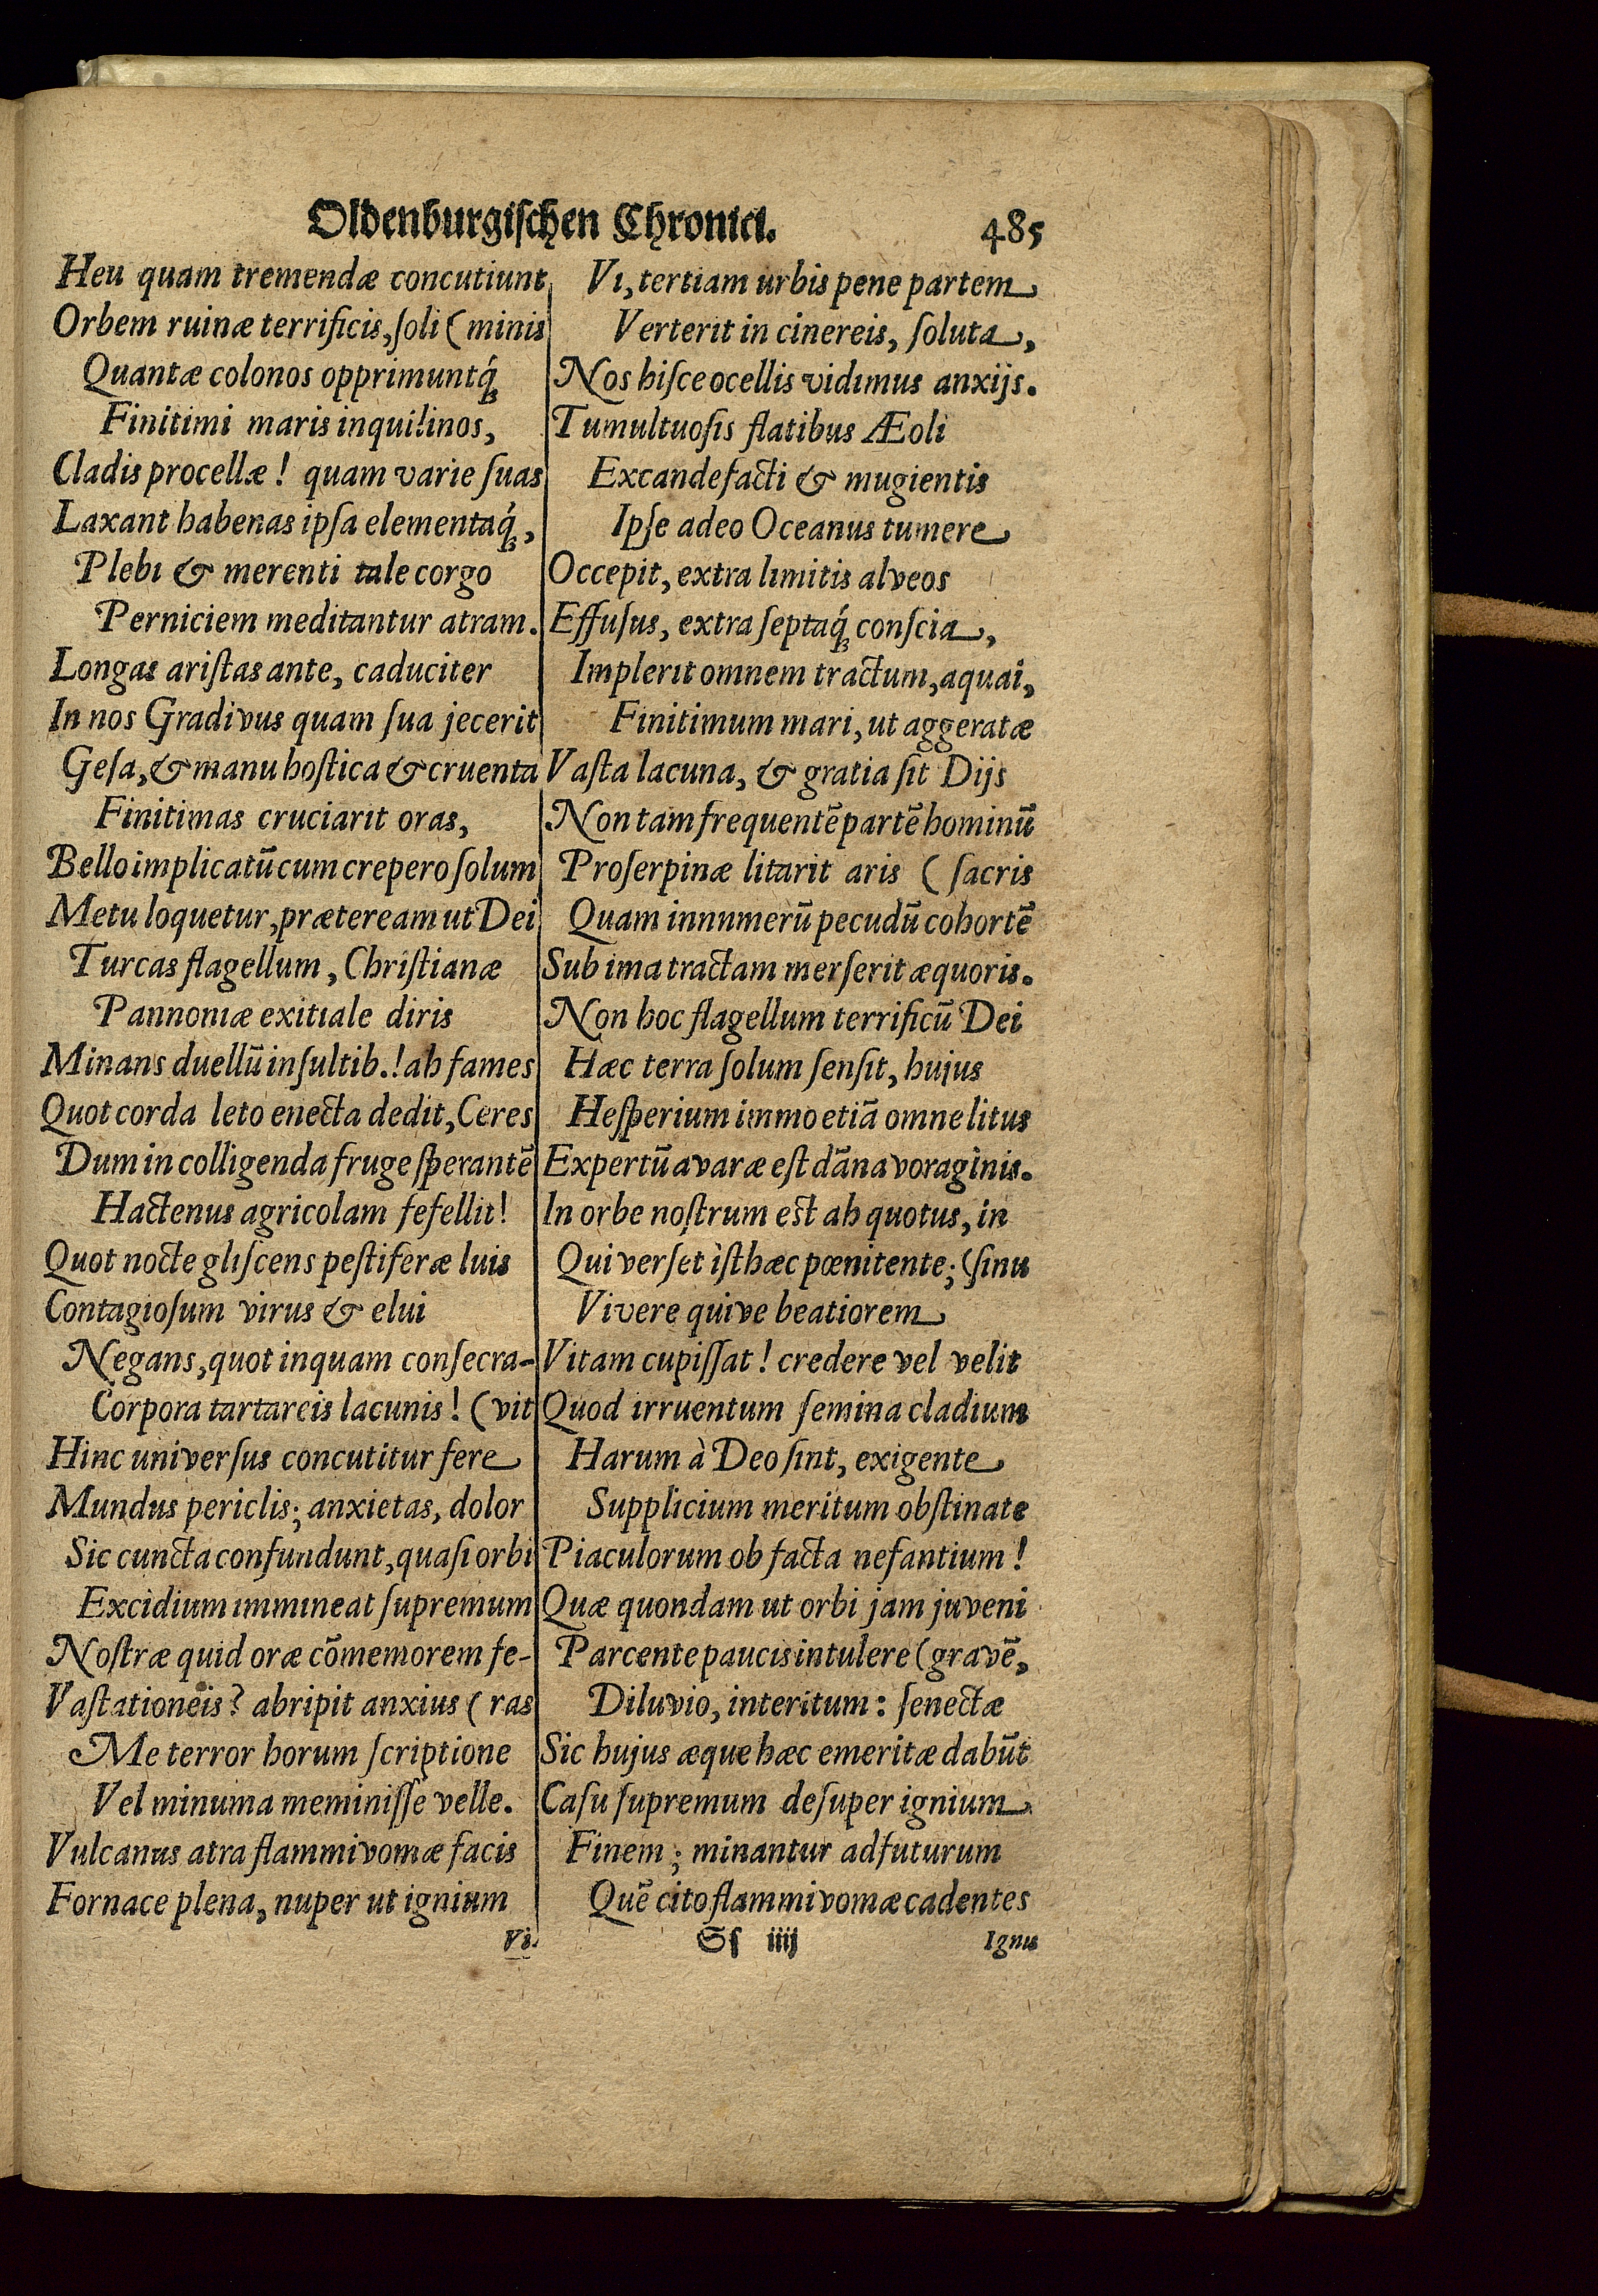 Oldenburgischen Chronici. 485
Heu quam tremendæ concutiunt
Orbem ruinæ terrificis, ſoli ( minis
Quantæ colonos opprimuntq́ꝫ
Finitimi maris inquilinos,
Cladis procellæ! quam varie ſuas
Laxant habenas ipſa elementaq́ꝫ,
Plebi & merenti tale corgo
Perniciem meditantur atram.
Longas ariſtas ante, caduciter
In nos Gradivus quam ſua jecerit
Geſa, & manu hoſtica & cruenta
Finitimas cruciarit oras,
Bello implicatū cum crepero ſolum
Metu loquetur, præteream ut Dei
Turcas flagellum, Chriſtianæ
Pannoniæ exitiale diris
Minans duellū inſultib.! ah fames
Quot corda leto enecta dedit, Ceres
Dum in colligenda fruge ſperantē
Hactenus agricolam fefellit!
Quot nocte gliſcens peſtiferæ luis
Contagioſum virus & elui
Negans, quot inquam conſecra-
Corpora tartareis lacunis! ( vit
Hinc univerſus concutitur fere
Mundus periclis; anxietas, dolor
Sic cuncta confundunt, quaſi orbi
Excidium immineat ſupremum
Noſtræ quid oræ cōmemorem fe-
Vaſtationeis? abripit anxius ( ras
Me terror horum ſcriptione
Vel minuma meminiſſe velle.
Vulcanus atra flammivomæ facis
Fornace plena, nuper ut ignium
Vi.
Vi, tertiam urbis pene partem
Verterit in cinereis, ſoluta,
Nos hiſce ocellis vidimus anxijs.
Tumultuoſis flatibus Æoli
Excandefacti & mugientis
Ipſe adeo Oceanus tumere
Occepit, extra limitis alveos
Effuſus, extra ſeptaq́ꝫ conſcia,
Implerit omnem tractum, aquai,
Finitimum mari, ut aggeratæ
Vaſta lacuna, & gratia ſit Dijs
Non tam frequentē partē hominū
Proſerpinæ litarit aris ( ſacris
Quam innnmerū pecudū cohortē
Sub ima tractam merſerit æquoris.
Non hoc flagellum terrificū Dei
Hæc terra ſolum ſenſit, hujus
Heſperium immo etiā omne litus
Expertū avaræ eſt dāna voraginis.
In orbe noſtrum eſt ah quotus, in
Qui verſet iſthæc pœnitente; (ſinu
Vivere quive beatiorem
Vitam cupiſſat! credere vel velit
Quod irruentum ſemina cladium
Harum à Deo ſint, exigente
Supplicium meritum obſtinate
Piaculorum ob facta nefantium!
Quæ quondam ut orbi jam juveni
Parcente paucis intulere (gravē,
Diluvio, interitum: ſenectæ
Sic hujus æque hæc emeritæ dabūt
Caſu ſupremum deſuper ignium
Finem; minantur adfuturum
Quē cito flammivomæ cadentes
Sſ iiij Ignis